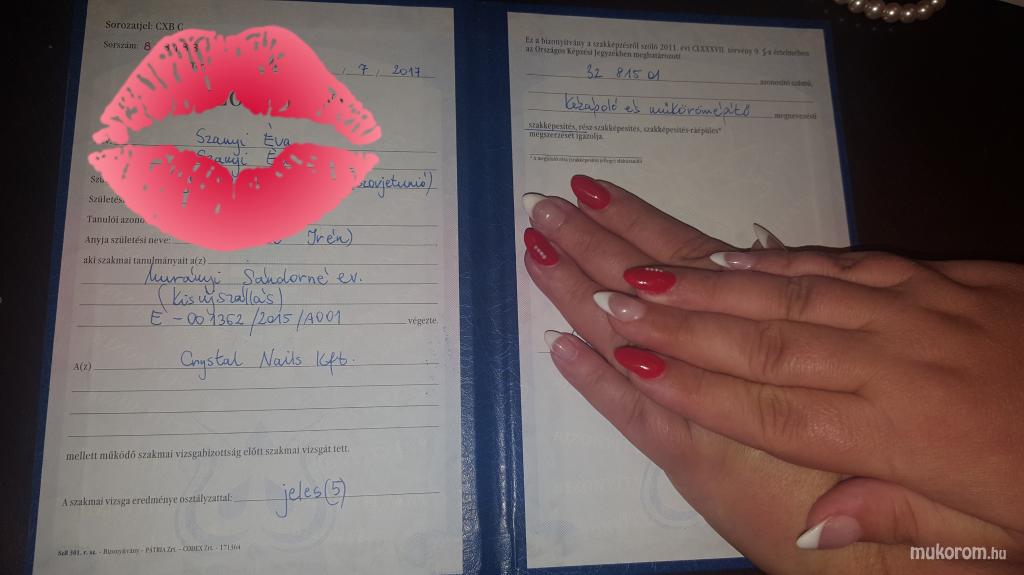 Sorozatjel: CXB C
Sorszám: 8
, 7, 2017
Szanyi Éva
Szanyi É
Szovjetunió)
Születés
Tanulói azono
Anyja születési neve: Irén)
aki szakmai tanulmányait a(z)
Murányi Sándorné ev.
(Kisújszállás)
E-007362/2015/A001 végezte.
A(z) Crystal Nails Kft.
mellett működő szakmai vizsgabizottság előtt szakmai vizsgát tett.
A szakmai vizsga eredménye osztályzattal: jeles (5)
Sz8 301. r. sz. - Bizonyítvány - PÁTRIA Zrt. - CODEX Zrt. - 171364
Ez a bizonyítvány a szakképzésről szóló 2011. évi CLXXXVII. törvény 9. §-a értelmében
az Országos Képzési Jegyzékben meghatározott
32 815 01 azonosító számú,
Kézápoló és műkörömépítő megnevezésű
szakképesítés, rész-szakképesítés, szakképesítés-ráépülés*
megszerzését igazolja.
* A megfelelő rész (szakképesítés jellege) aláhúzandó
mukorom.hu